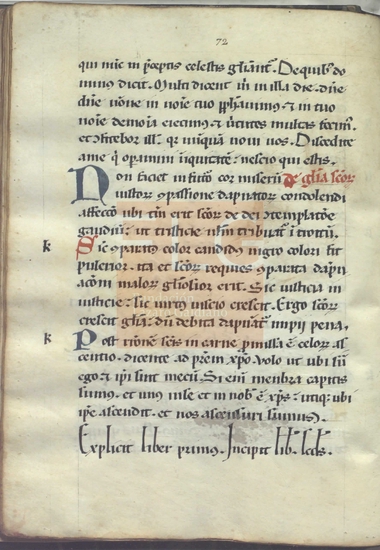 72
qui nunc in p̄ceptis celestib; gl̄iant̄. De quib; do
minus dicit. Multi dicent m̄ in illa die. dn̄e
dn̄e nōne in noīe tuo pph̄auim; ⁊ in tuo
noīe demonia eiecim; ⁊ ututes multas fecim;.
et 9fitebor ill̄. qr nūquā noui uos. Discedite
a me q̄ opamini iniquitatē: nescio qui estis.
Non faciet iustos cor miserū De gl̄ia sc̄or
9passione dāpnator condolendi
affecco ubi tm̄ erit sc̄or de dei 9templatōe
gaudiū: ut tristicie nll̄m tribuat̄ introitū.
k Sic 9parat; color candid; nigro colori fit
pulcrior. ita et sc̄or requies 9parata dāpn
acōni malor gl̄iosior erit. Sic iusticia in
iusticie: sic uirt; uicio crescit. Ergo sc̄or
crescit gl̄ia: dū debita dāpnat̄ impii pena.
k Post xp̄i in carne pmissa ē celor as
centio. dicente ad pr̄em xp̄o. Uolo ut ubi sū
ego: ⁊ ip̄i sint mecū. Si eni menbra capitis
sum;. et unus in se et in nob̄ ē xp̄s: utiq; ubi
ip̄e ascendit. et nos ascensuri sumus.
Explicit liber primus. Incipit lib̄. scd̄s.